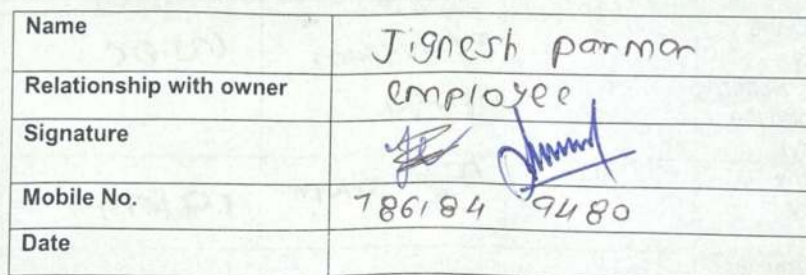 Name Jignesh parmar
Relationship with owner employee
Signature
Mobile No. 786184 9480
Date